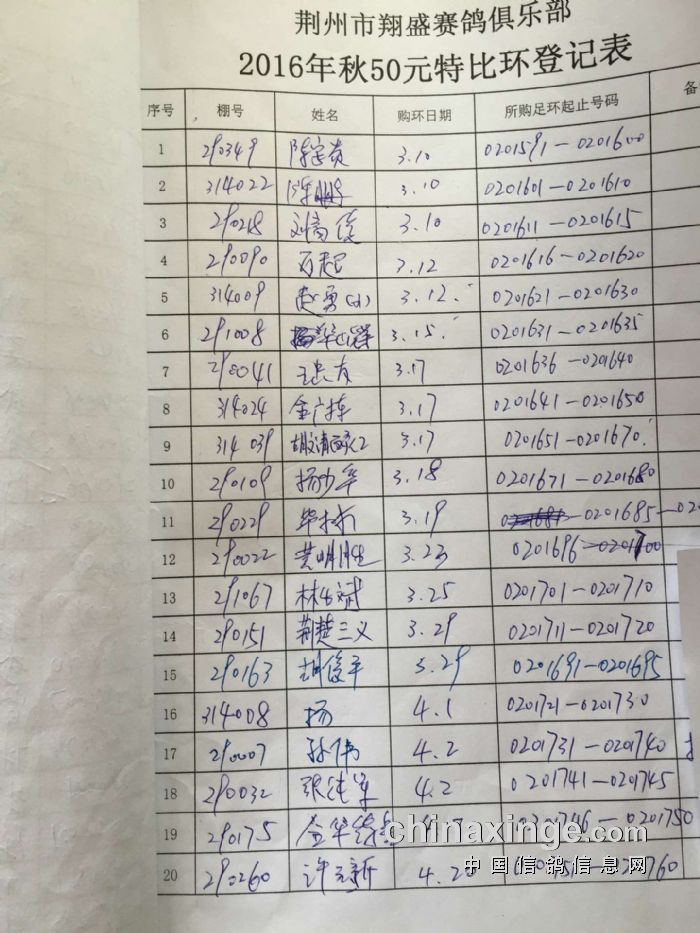 荆州市翔盛赛鸽俱乐部
2016年秋50元特比环登记表
序号 棚号 姓名 购环日期 所购足环起止号码 备
1 290349 3.10 0201591—0201600
2 314022 陈鹏 3.10 0201601—0201610
3 290218 刘高俊 3.10 0201611—0201615
4 290090 石超 3.12 0201616—0201620
5 314009 赵勇 3.12. 0201621—0201630
6 291008 3.15. 0201631—0201635
7 290041 王忠友 3.17 0201636—0201640
8 314024 金广栋 3.17 0201641—0201650
9 314039 3.17 0201651—0201670.
10 290109 杨少军 3.18 0201671—0201680
11 290229 3.19 0201685—02
12 290022 黄明胜 3.23 0201696—0201700
13 291067 林斌 3.25 0201701—0201710
14 290151 荆楚三义 3.29 0201711—0201720
15 290163 胡俊平 3.29 0201691—0201695
16 314008 杨 4.1 0201721—0201730
17 290007 孙伟 4.2 0201731—0201740
18 290032 张纯军 4.2 0201741—0201745
19 290175 金华 0201746—0201750
chinaxinge.com
20 290260 许新 4.20 0201760
中国信鸽信息网